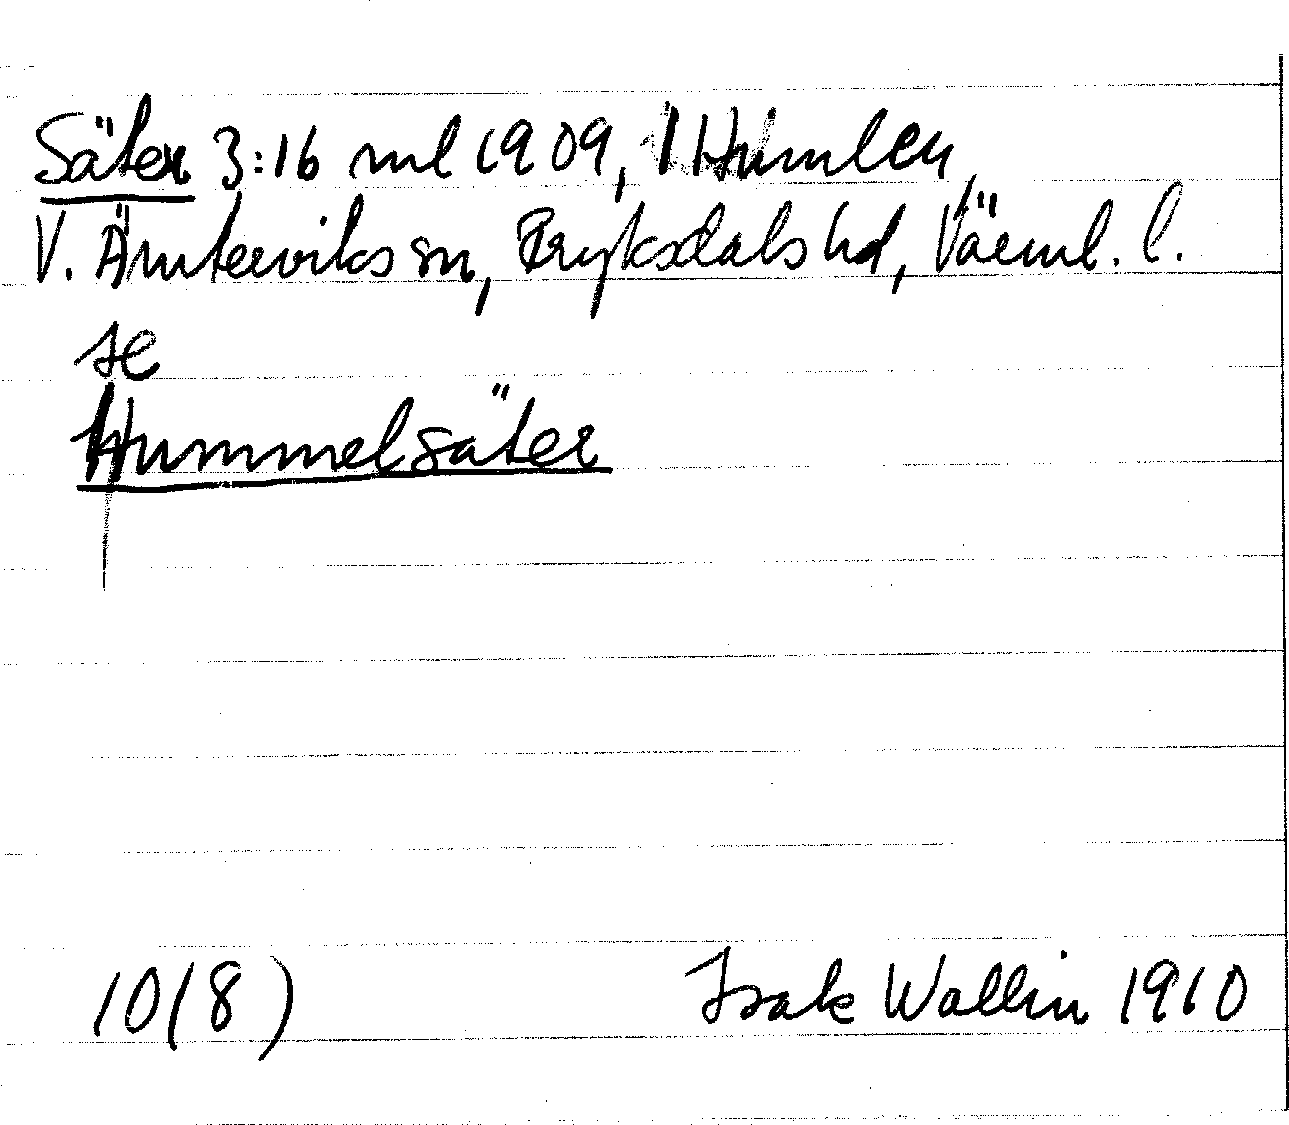 Säter 3:16 ml 1909, Humlen,
V. Ämterviks sn, Fryksdals hd, Värml. l.
se
Hummelsäter
10(8)
Isak Wallin 1910